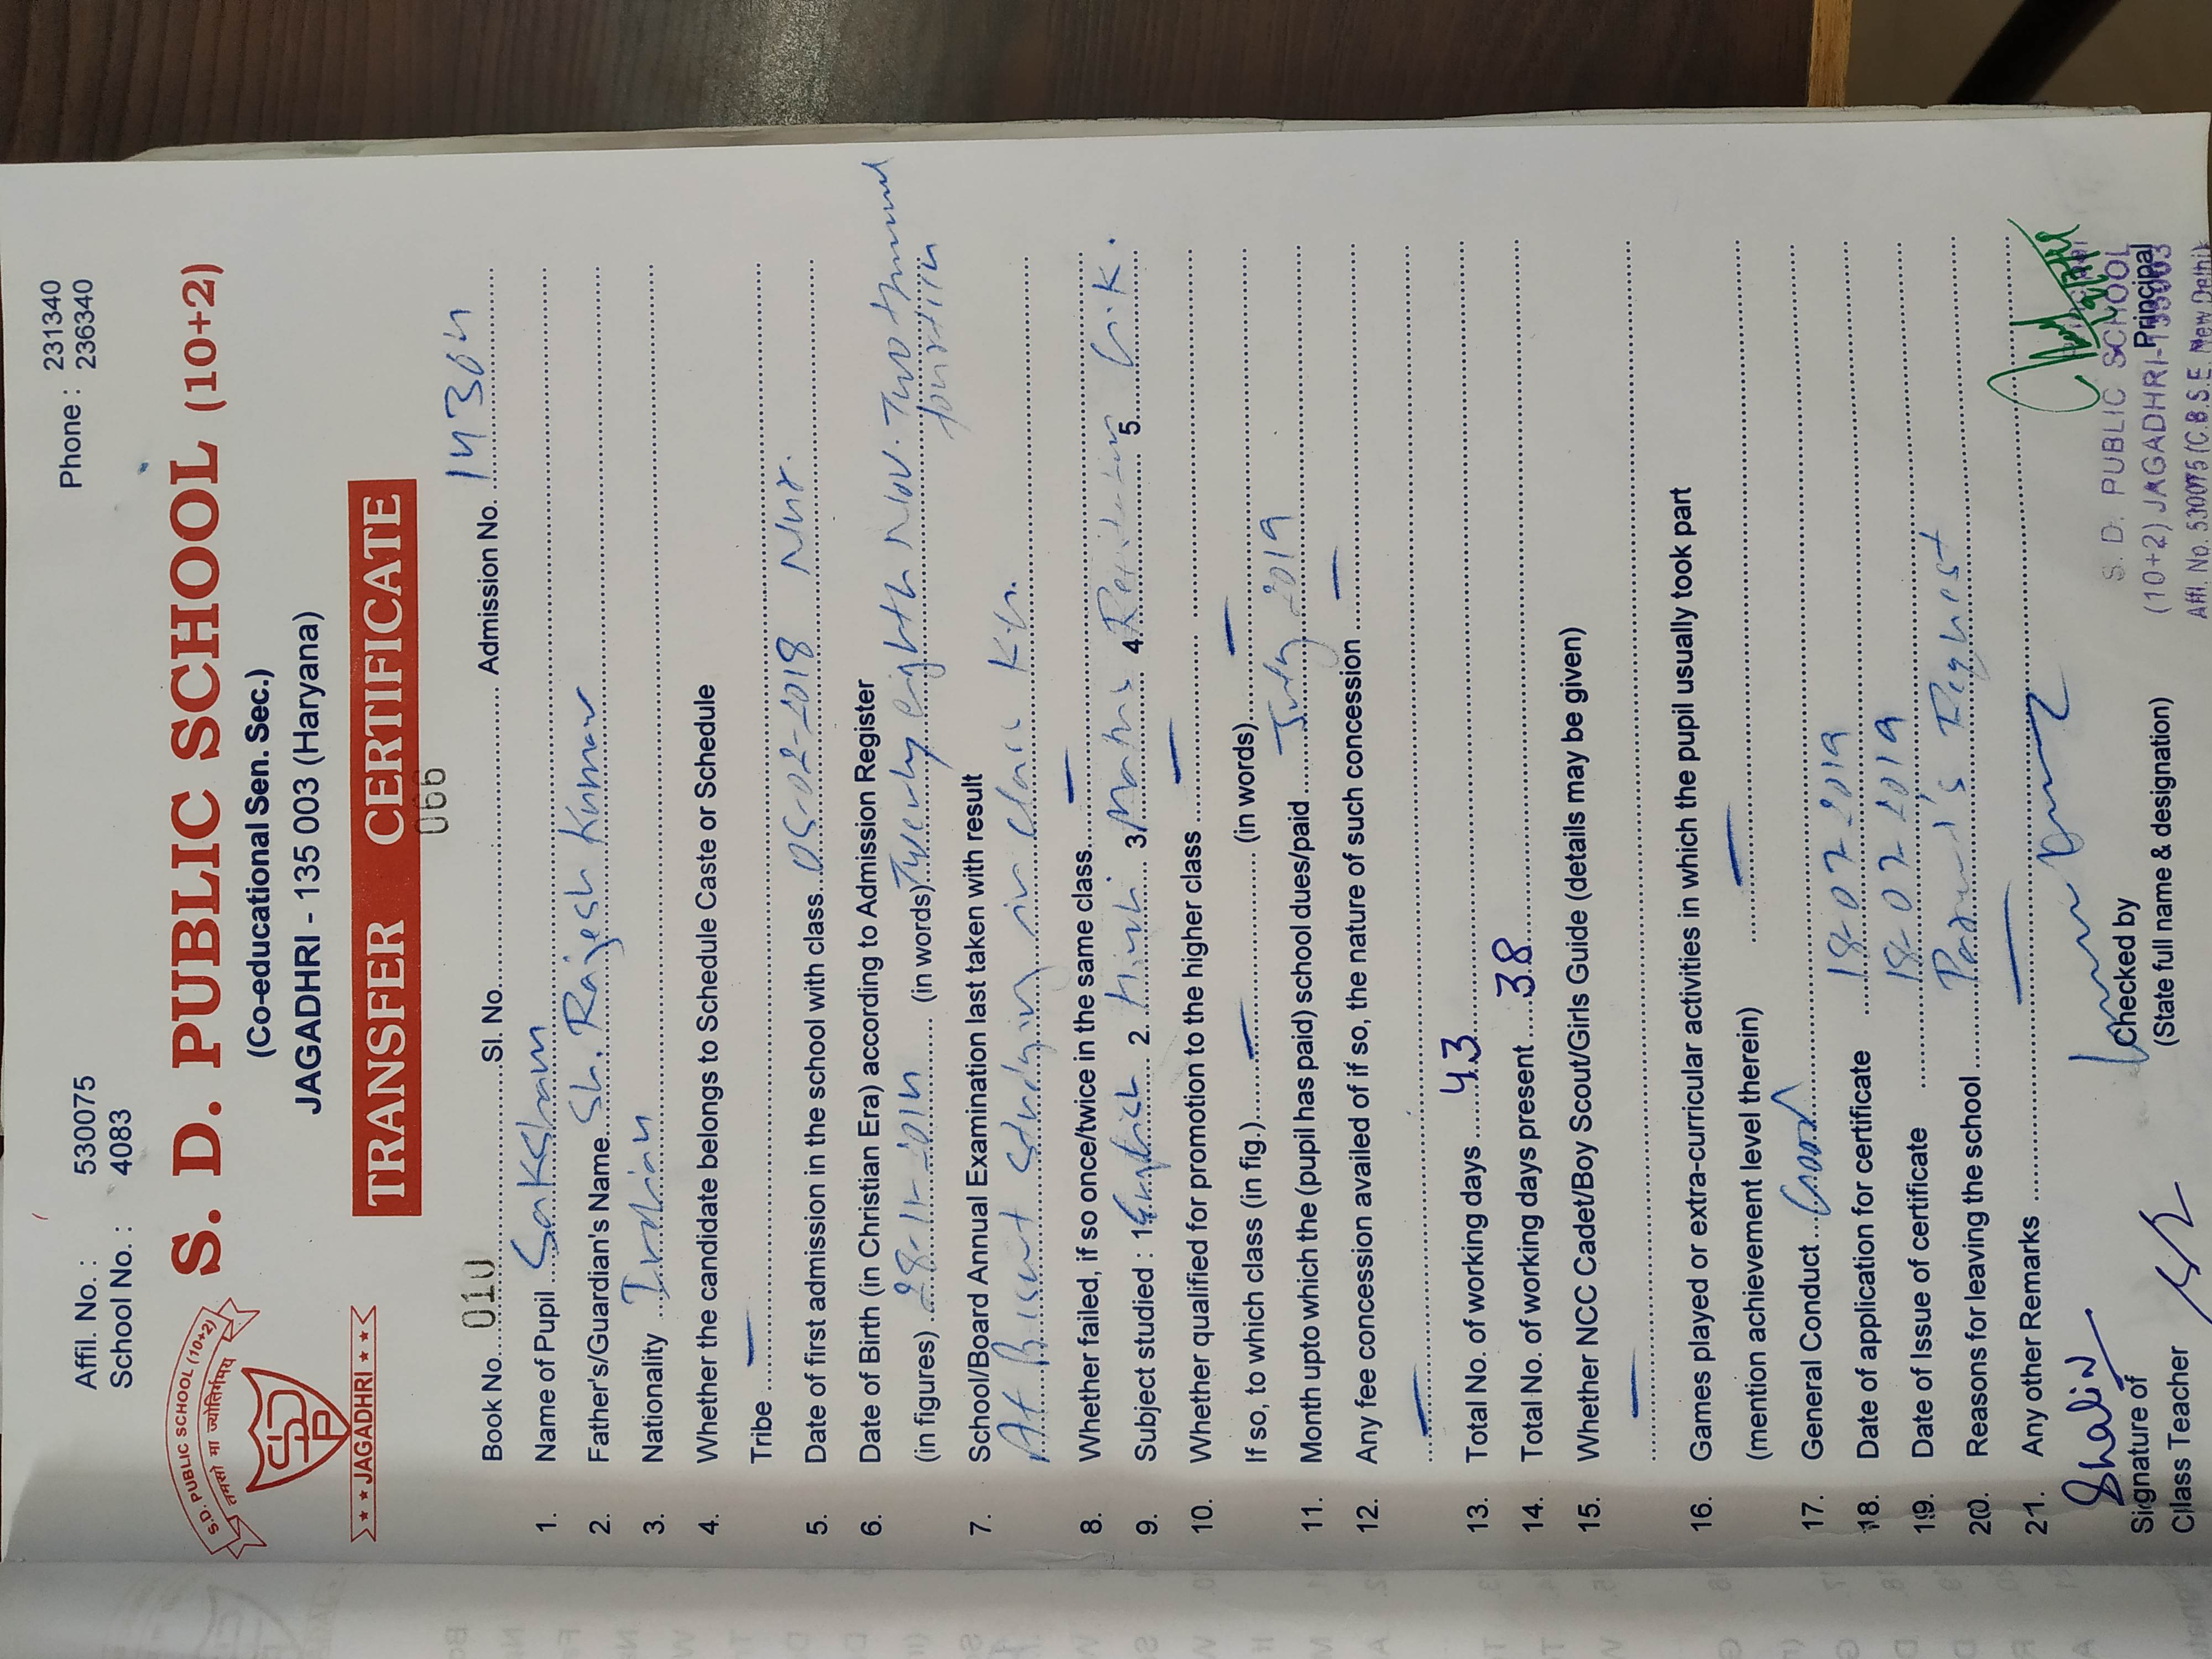 Affil. No. : 530075
School No. : 4083
Phone : 231340
236340
S.D. PUBLIC SCHOOL (10+2)
तमसो मा ज्योतिर्गमय
SD
P
★ ★ JAGADHRI ★ ★
S. D. PUBLIC SCHOOL (10+2)
(Co-educational Sen. Sec.)
JAGADHRI - 135 003 (Haryana)
TRANSFER CERTIFICATE
Book No. 010 Sl. No. 066 Admission No. 14304
1. Name of Pupil Saksham
2. Father's/Guardian's Name Sh. Rajesh Kumar
3. Nationality Indian
4. Whether the candidate belongs to Schedule Caste or Schedule
Tribe —
5. Date of first admission in the school with class 05-02-2018 Nur.
6. Date of Birth (in Christian Era) according to Admission Register
(in figures) 28-11-2014 (in words) Twenty eighth Nov. Two thousand
fourteen
7. School/Board Annual Examination last taken with result
At Present studying in class K.G.
8. Whether failed, if so once/twice in the same class —
9. Subject studied : 1 English 2 Hindi 3 Maths 4 Recitation 5. G.K.
10. Whether qualified for promotion to the higher class —
If so, to which class (in fig.) — (in words) —
11. Month upto which the (pupil has paid) school dues/paid July 2019
12. Any fee concession availed of if so, the nature of such concession —
—
13. Total No. of working days 43
14. Total No. of working days present 38
15. Whether NCC Cadet/Boy Scout/Girls Guide (details may be given)
—
16. Games played or extra-curricular activities in which the pupil usually took part
(mention achievement level therein) —
17. General Conduct Good
18. Date of application for certificate 18-07-2019
19. Date of Issue of certificate 18-07-2019
20. Reasons for leaving the school Parent's Request
21. Any other Remarks —
Shalin
Signature of
Class Teacher
Checked by
(State full name & designation)
Principal
S. D. PUBLIC SCHOOL
(10+2) JAGADHRI-135003
Affl. No. 530075 (C.B.S.E. New Delhi)